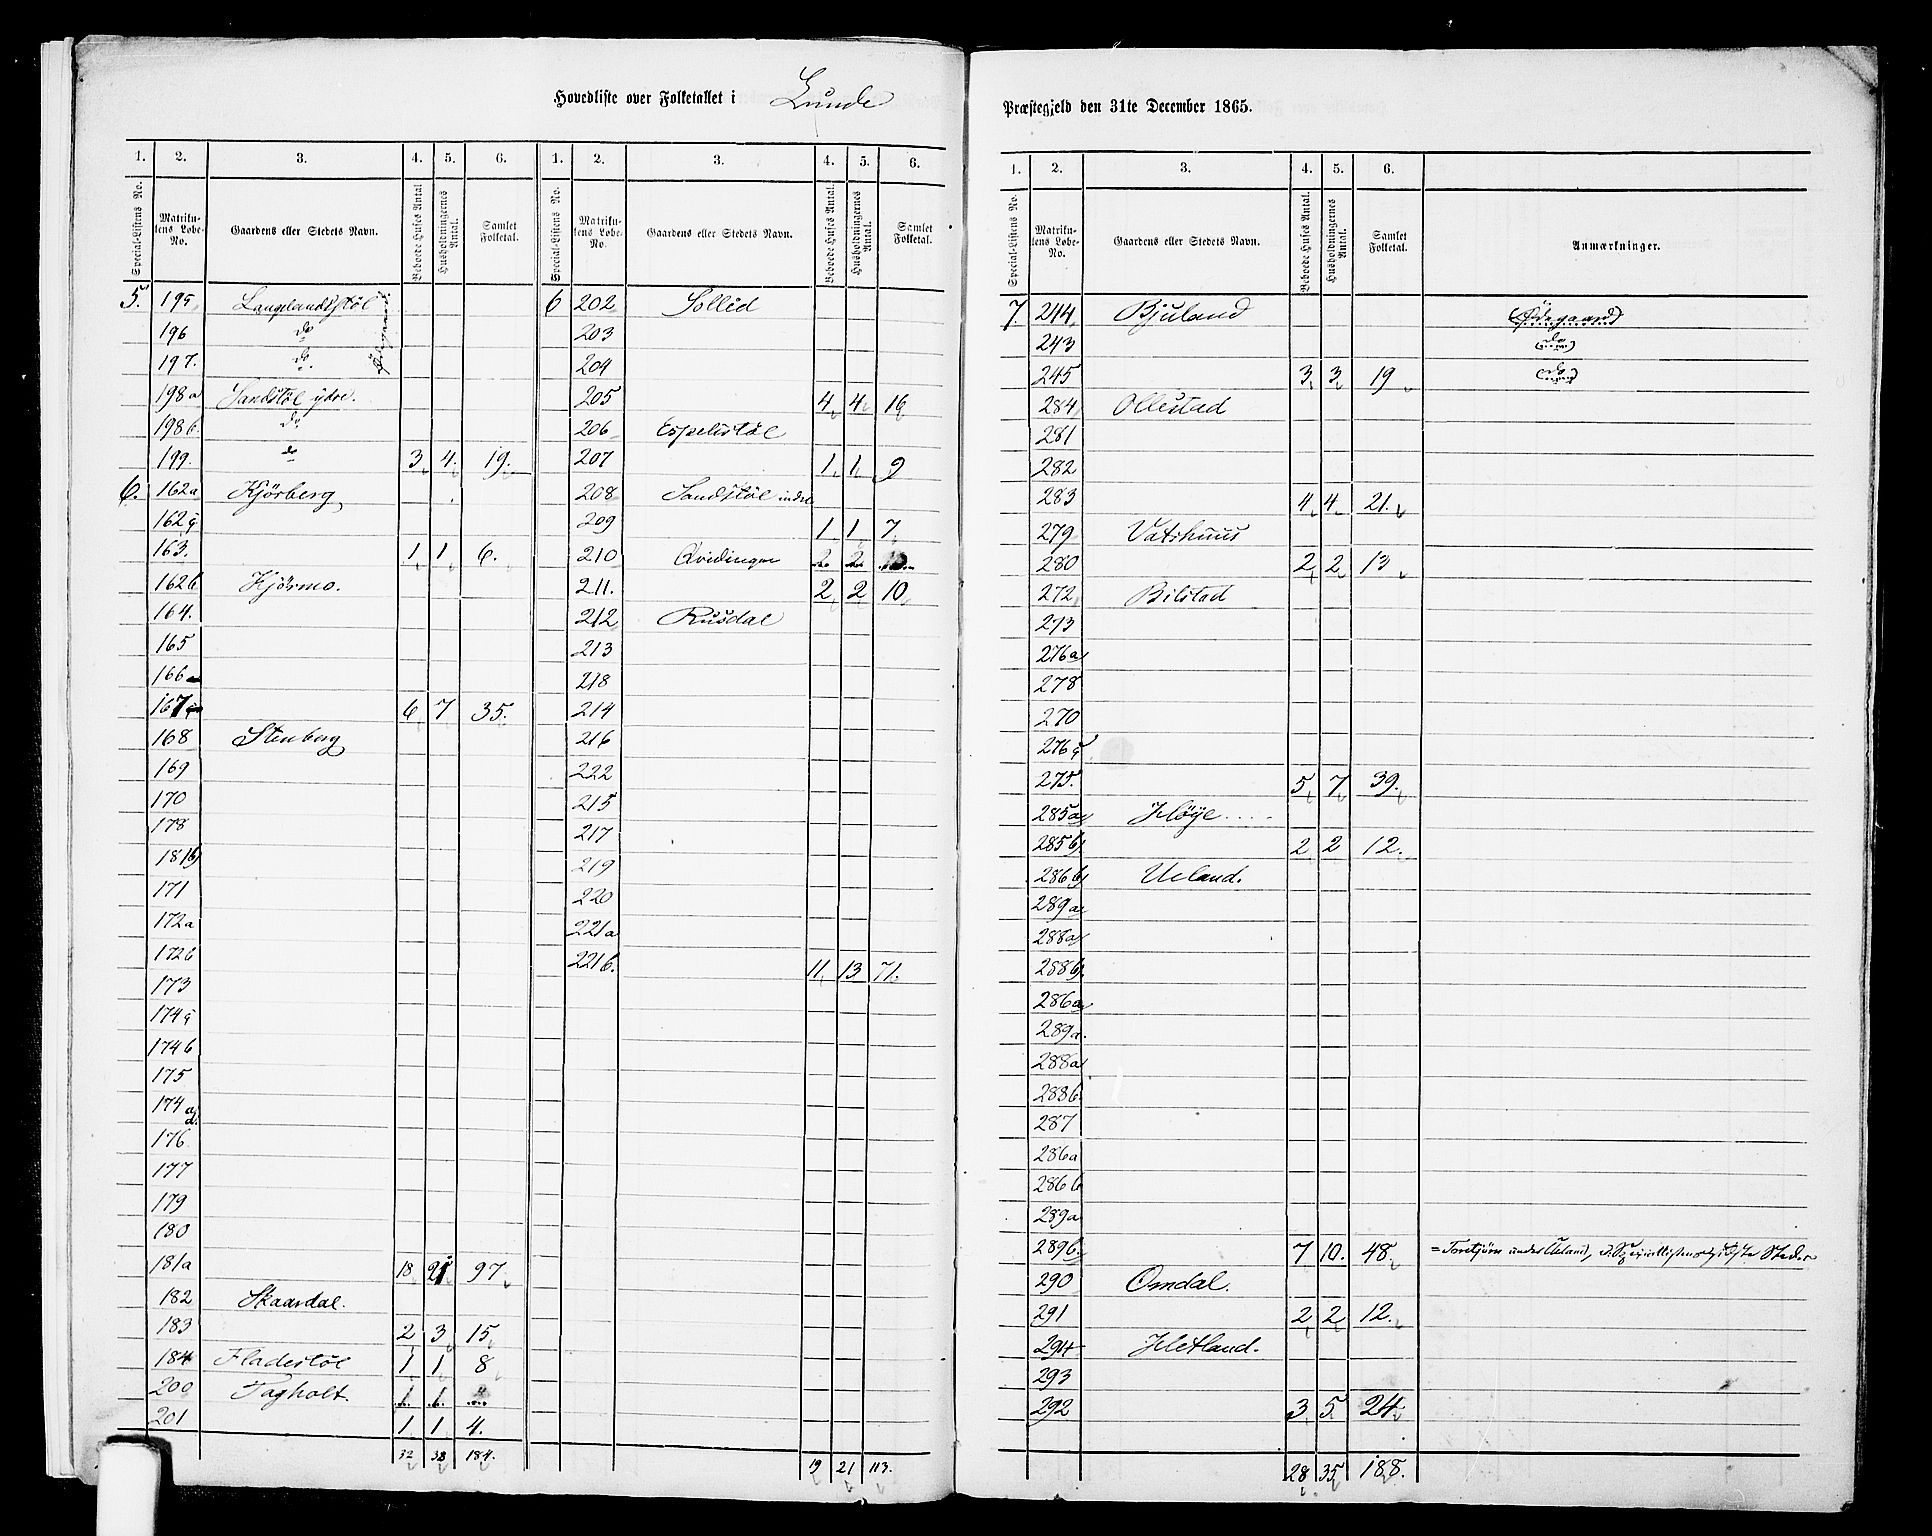 Hovedliste over Folketallet i Lunde Præstegjeld den 31te December 1865.
1. 2. 3. 4. 5. 6. 1. 2. 3. 4. 5. 6.
Special-Listens No. Matrikulens Løbe-No. Gaardens eller Stedets Navn. Beboede Huses Antal Husholdningernes Antal. Samlet Folketal. Special-Listens No. Matrikulens Løbe-No. Gaardens eller Stedets Navn. Beboede Huses Antal. Husholdningernes Antal. Samlet Folketal.
5. 195 Langelandsstøl
196 do
197. do.
198a Sandstøl ydre.
198b. do
199. do 3 4. 19.
6. 162a Kjörberg
162c
163. 1 1 6.
162b Kjörmo.
164.
165
166
167 6 7 35.
168 Stenberg
169
170
178
181b
171
172a
172b
173
174c
174b
175
174a d.
176
177
179
180
181a 18 21 97
182 Skaardal.
183 2 3 15
184 Fladestöl 1 1 8
200 Tagholt. 1. 1.
201 1 1 4.
32 38 184.
6 202 Sollid
203
204
205 4 4 16
206 Espelistøl
207 1 1 9
208 Sandstøl indre
209 1 1 7
210 Qvidingen 2 2
211. 2 2 10
212 Rusdal
213
218
214
216
222
215
217
219
220
221a
221b. 11 13 71.
19 21 113.
1. 2. 3. 4. 5. 6.
Special-Listens No. Matrikulens Løbe-No. Gaardens eller Stedets Navn. Beboede Huses Antal. Husholdningernes Antal. Samlet Folketal. Anmærkninger.
7. 244 Bjuland (Ødegaard)
243 (do)
245 3 3 19 (do)
284 Ollestad
281
282
283 4 4 21.
279 Vatshuus
280 2 2 13
272 Bilstad
273
276a
278
270
276c
275. 5 7 39.
285a Høye ....
285b 2 2 12.
286b Ueland.
289a
288a
288b.
286a
289a.
288a
288b.
287
286a
286b
289a
289b. 7 10. 48. = Toretjörn under Ueland,
290 Omdal.
291 2 2 12.
294 Hetland.
293
292 3 5 24
28 35 188.